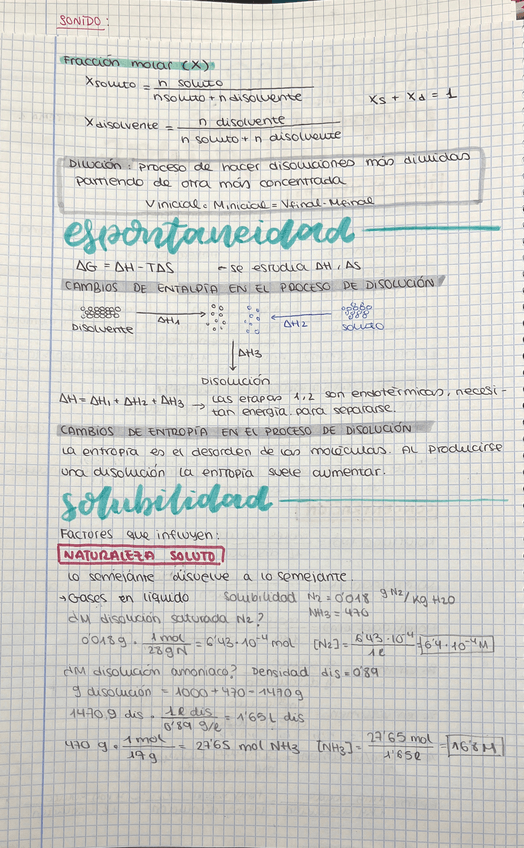 SONIDO:
Fracción molar (X)
Xsoluto = n soluto / nsoluto + n disolvente
Xs + Xd = 1
Xdisolvente = n disolvente / n soluto + n disolvente
Dilución: proceso de hacer disoluciones más diluidas
partiendo de otra más concentrada
Vinicial · Minicial = Vfinal · Mfinal
espontaneidad
ΔG = ΔH - TΔS - se estudia ΔH, ΔS
CAMBIOS DE ENTALPÍA EN EL PROCESO DE DISOLUCIÓN
ΔH1 ΔH2
Disolvente soluto
ΔH3
Disolución
ΔH = ΔH1 + ΔH2 + ΔH3 → Las etapas 1,2 son endotérmicas, necesi-
tan energía para separarse.
CAMBIOS DE ENTROPÍA EN EL PROCESO DE DISOLUCIÓN
La entropía es el desorden de las moléculas. Al producirse
una disolución la entropía suele aumentar.
solubilidad
Factores que influyen:
NATURALEZA SOLUTO
Lo semejante disuelve a lo semejante.
→ Gases en líquido Solubilidad N2 = 0'018 g N2/kg H2O
NH3 = 470
¿M disolución saturada N2?
0'018g · 1mol / 28g N = 6'43·10⁻⁴ mol [N2] = 6'43·10⁻⁴ / 1l = 6'4·10⁻⁴M
¿M disolución amoniaco? Densidad dis = 0'89
g disolución = 1000 + 470 = 1470g
1470 g dis · 1l dis / 0'89 g/l = 1'65 L dis
470 g · 1mol / 17g = 27'65 mol NH3 [NH3] = 27'65 mol / 1'65l = 16'8 M